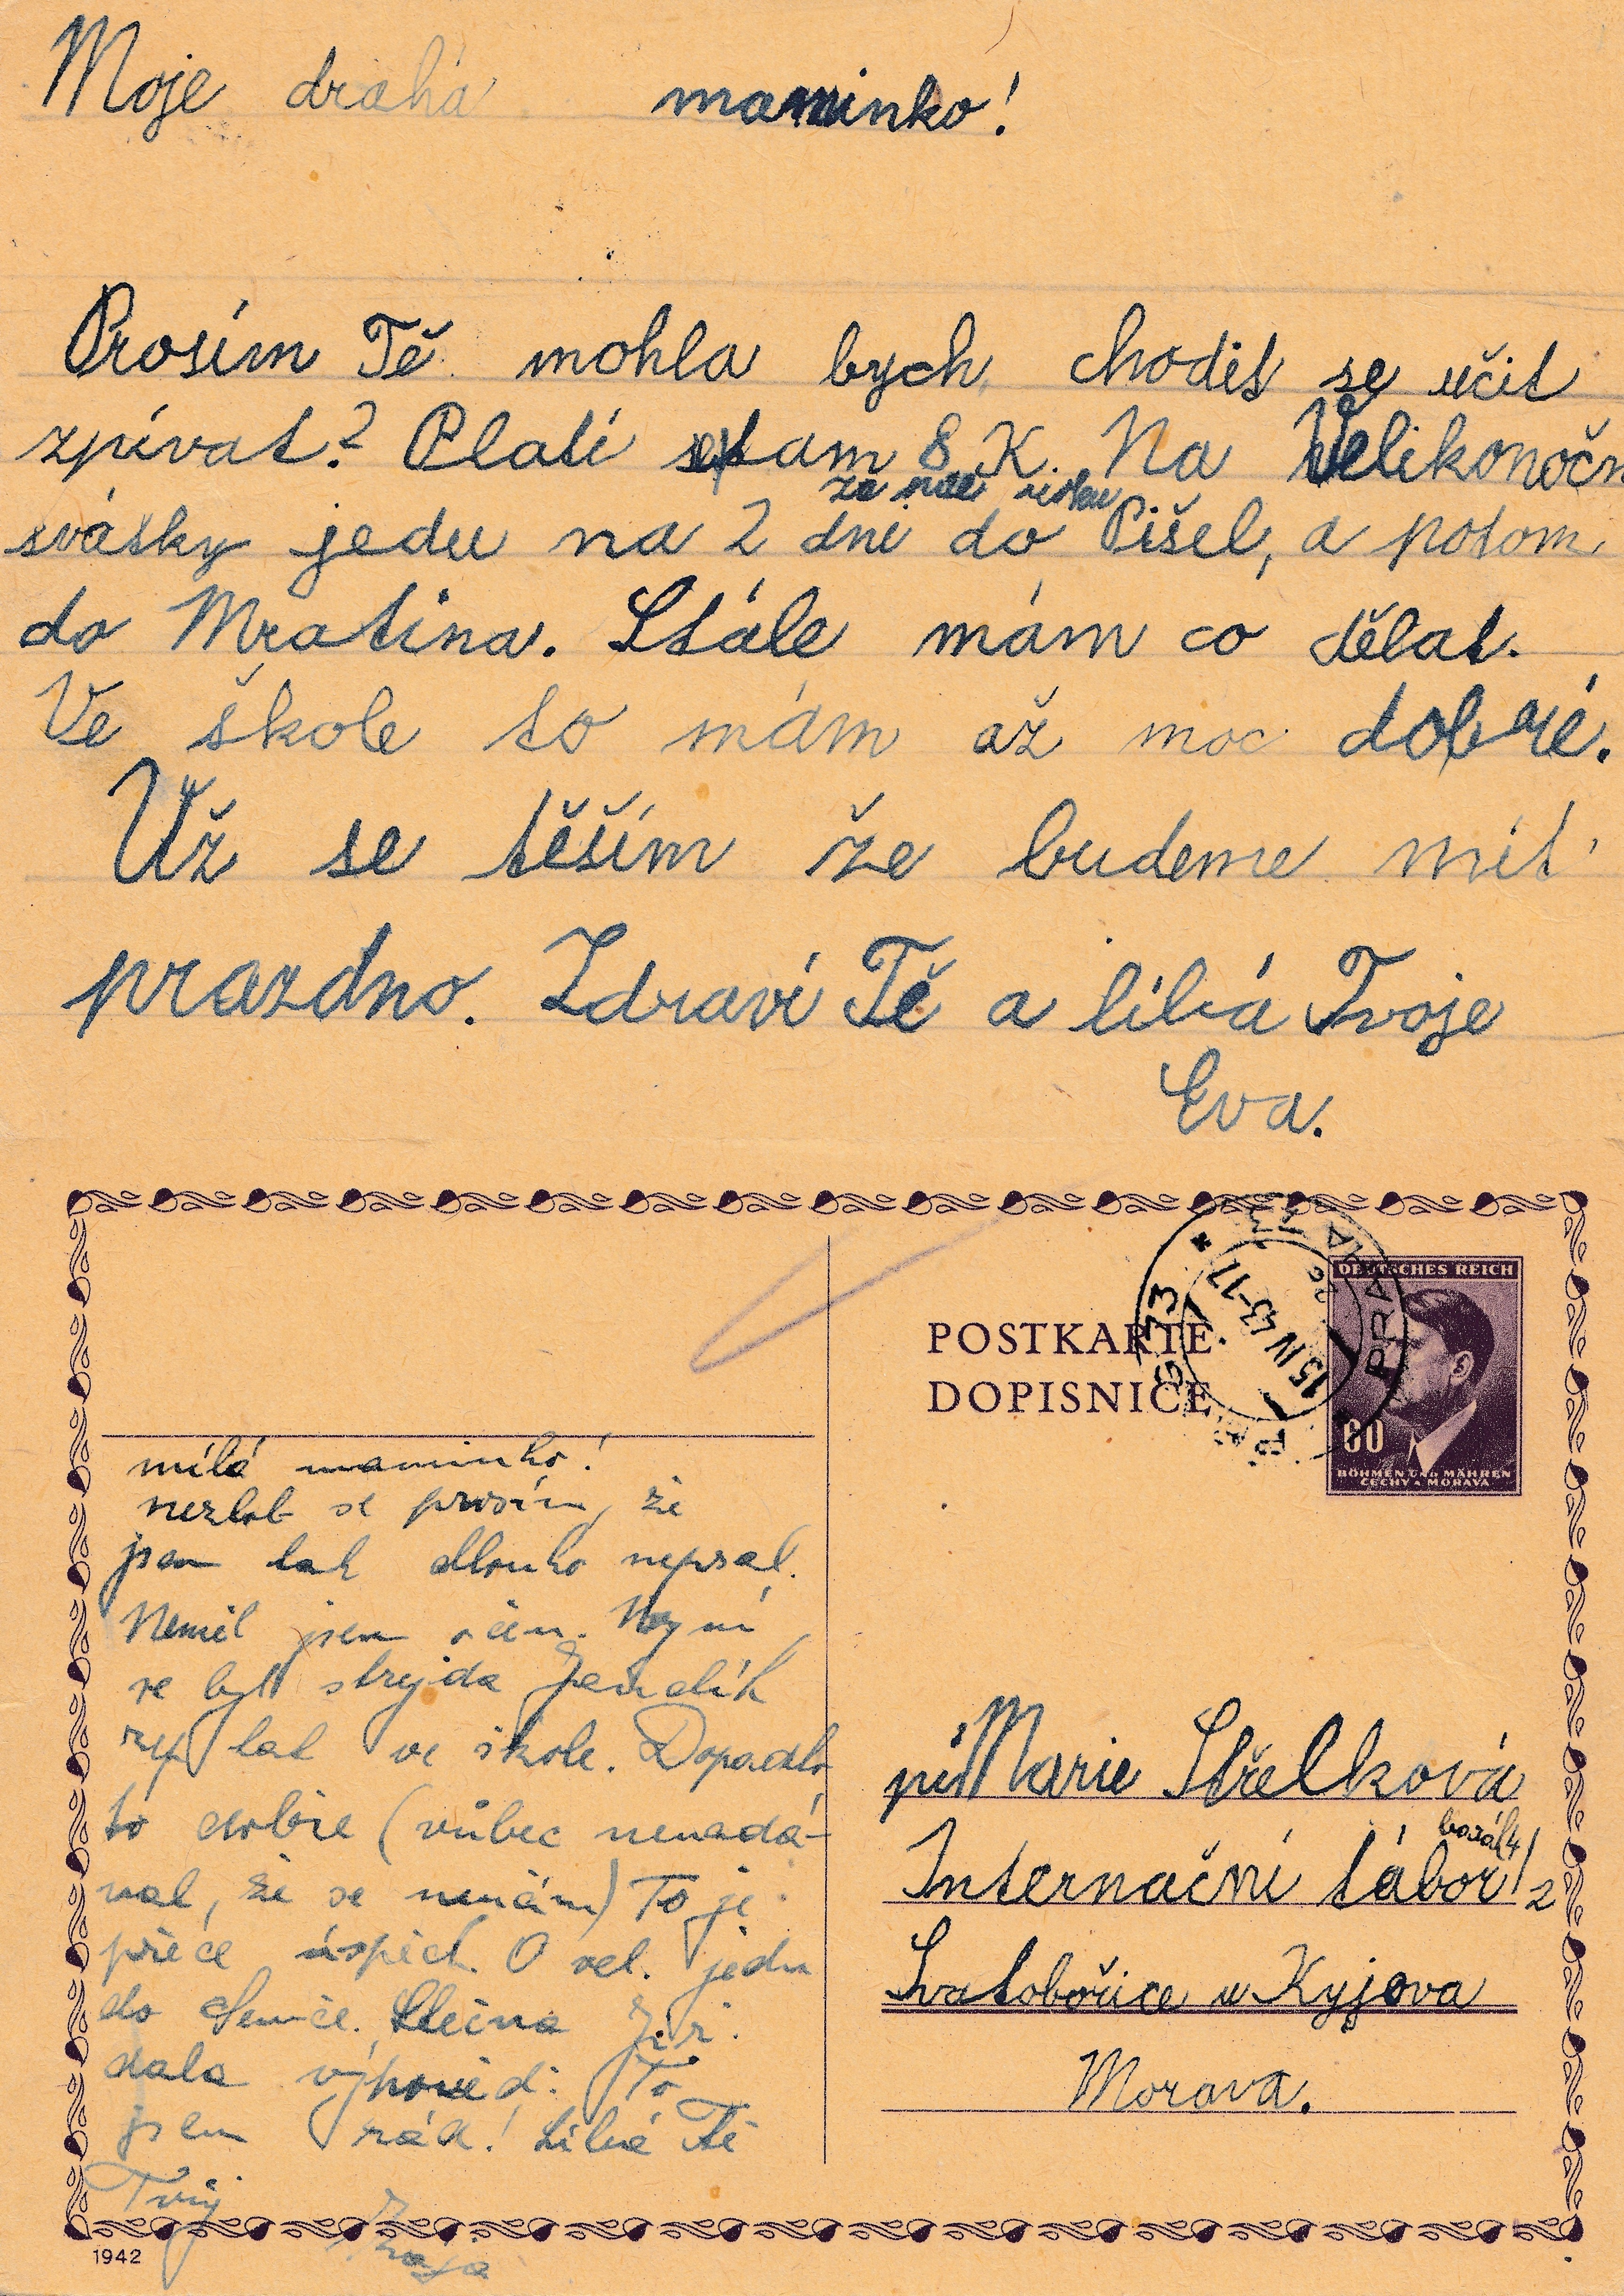 Moje drahá maminko!
Prosím Tě mohla bych chodit se učit
zpívat? Platí se tam 8 K. Na Velikonoční
za
svátky jedu na 2 dni do Pišel, a potom
do Mratína. Stále mám co dělat.
Ve škole to mám až moc dobré.
Už se těším že budeme mít
prazdno. Zdraví Tě a líbá Tvoje
Eva.
POSTKARTE
DOPISNICE
DEUTSCHES REICH
60
BÖHMEN UND MÄHREN
ČECHY A MORAVA
PRAHA
15 IV 43-17
milá maminko!
nezlob se prosím, že
jsem tak dlouho nepsal.
Neměl jsem čas. Nyní
se byl strejda
zeptat ve škole. Dopadlo
to dobře (vůbec nenadá-
val, že se neučím) To je
přece úspěch. O vel. jedu
do Senice. Slečna Jiř.
dala výpověď. To
jsem rád! Líbá Tě
Tvůj
1942
pí Marie Střelková
barák 4
Internační tábor 2
Svatobořice u Kyjova
Morava.